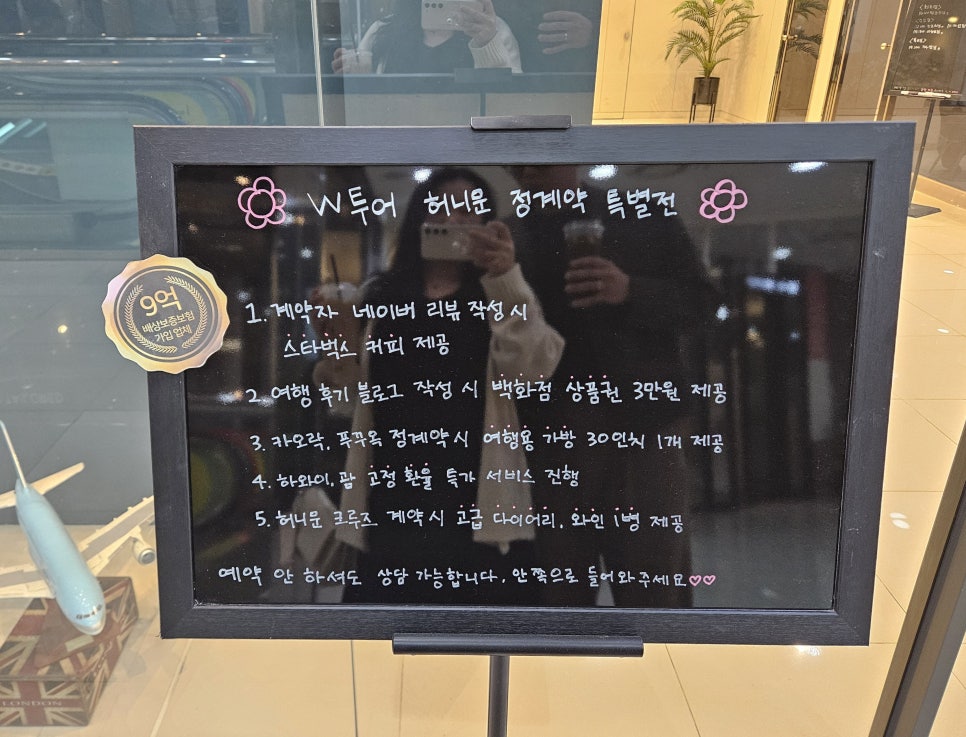 W투어 허니문 정계약 특별전
1. 계약자 네이버 리뷰 작성 시
스타벅스 커피 제공
2. 여행 후기 블로그 작성 시 백화점 상품권 3만원 제공
3. 카오락, 푸꾸옥 정계약 시 여행용 가방 30인치 1개 제공
4. 하와이, 괌 고정 환율 특가 서비스 진행
5. 허니문 크루즈 계약 시 고급 다이어리, 와인 1병 제공
예약 안 하셔도 상담 가능합니다. 안쪽으로 들어와주세요♡♡
9억
배상보증보험
가입업체
LONDON